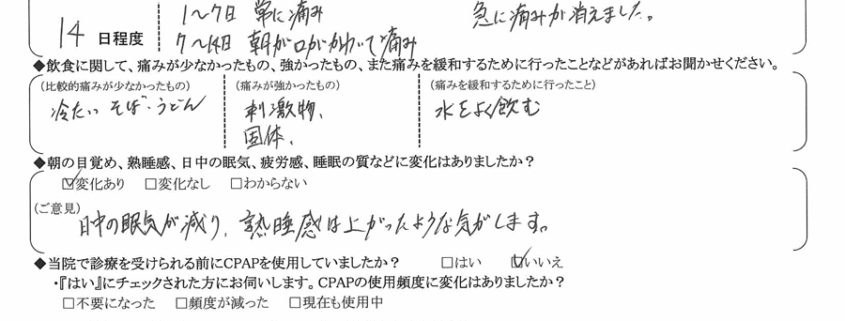 14 日程度
1〜7日 常に痛み
7〜14日 朝が口がかわいて痛み
急に痛みが消えました。
◆飲食に関して、痛みが少なかったもの、強かったもの、また痛みを緩和するために行ったことなどがあればお聞かせください。
(比較的痛みが少なかったもの)
冷たい そば・うどん
(痛みが強かったもの)
刺激物、
固体、
(痛みを緩和するために行ったこと)
水をよく飲む
◆朝の目覚め、熟睡感、日中の眠気、疲労感、睡眠の質などに変化はありましたか?
☑変化あり □変化なし □わからない
(ご意見)
日中の眠気が減り、熟睡感は上がったような気がします。
◆当院で診療を受けられる前にCPAPを使用していましたか? □はい ☑いいえ
・『はい』にチェックされた方にお伺いします。CPAPの使用頻度に変化はありましたか?
□不要になった □頻度が減った □現在も使用中